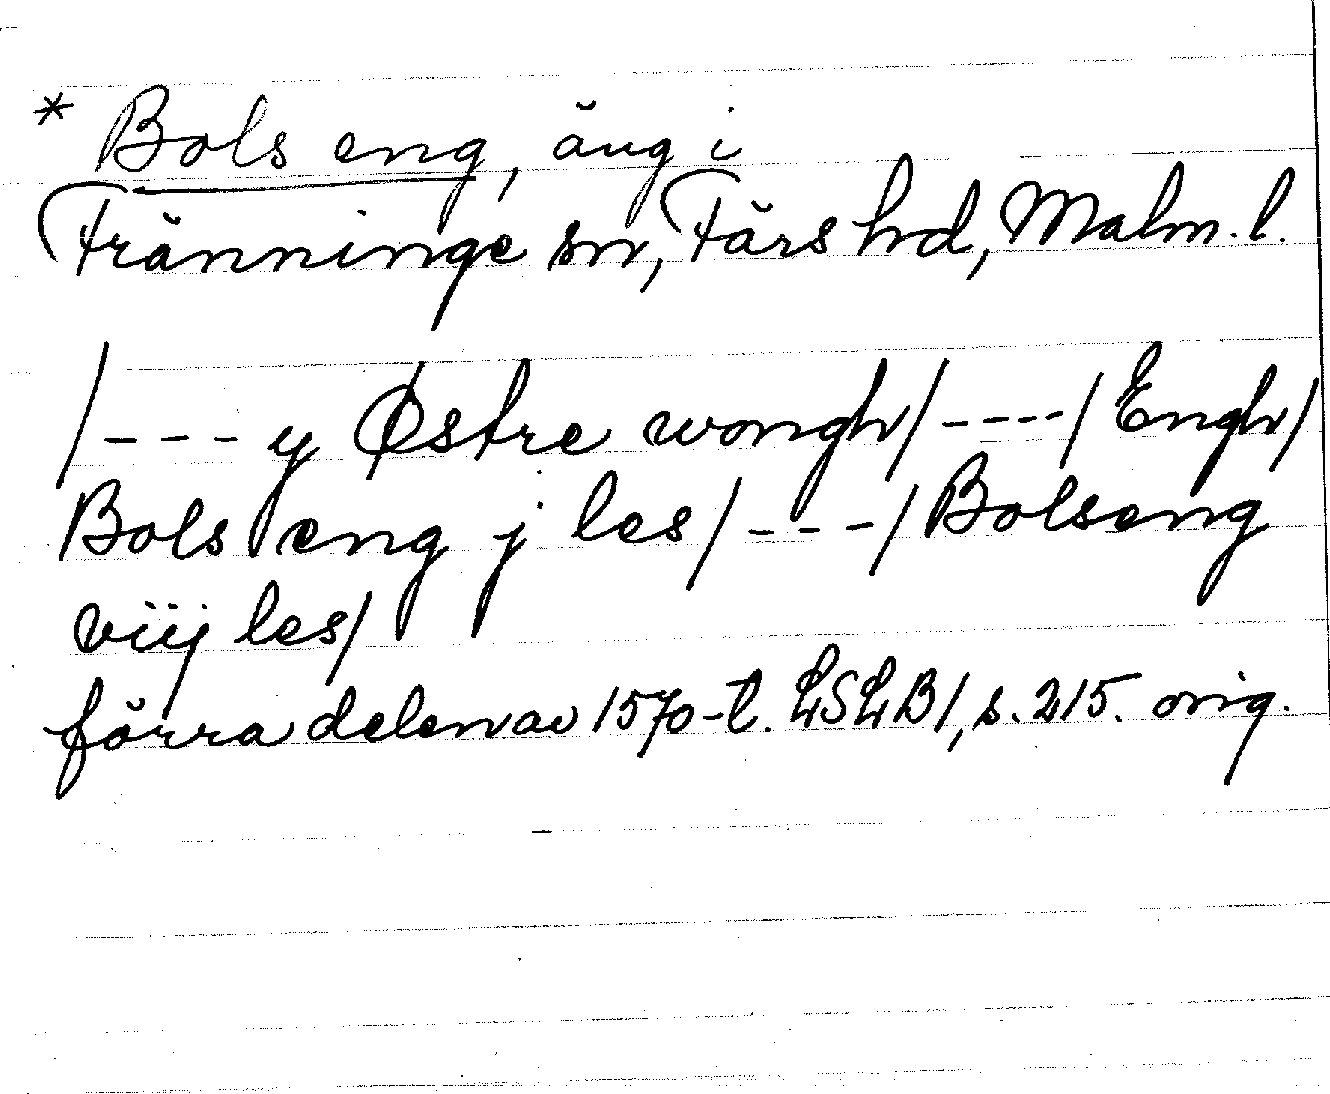 * Bols eng, äng i
Tränninge sn, Färs hd, Malm. l.
/--- y Østre wongh/----/Engh/
Bols eng j les/---/Bolseng
viij les/
förra delen av 1570-t. LSLB1, s. 215. orig.